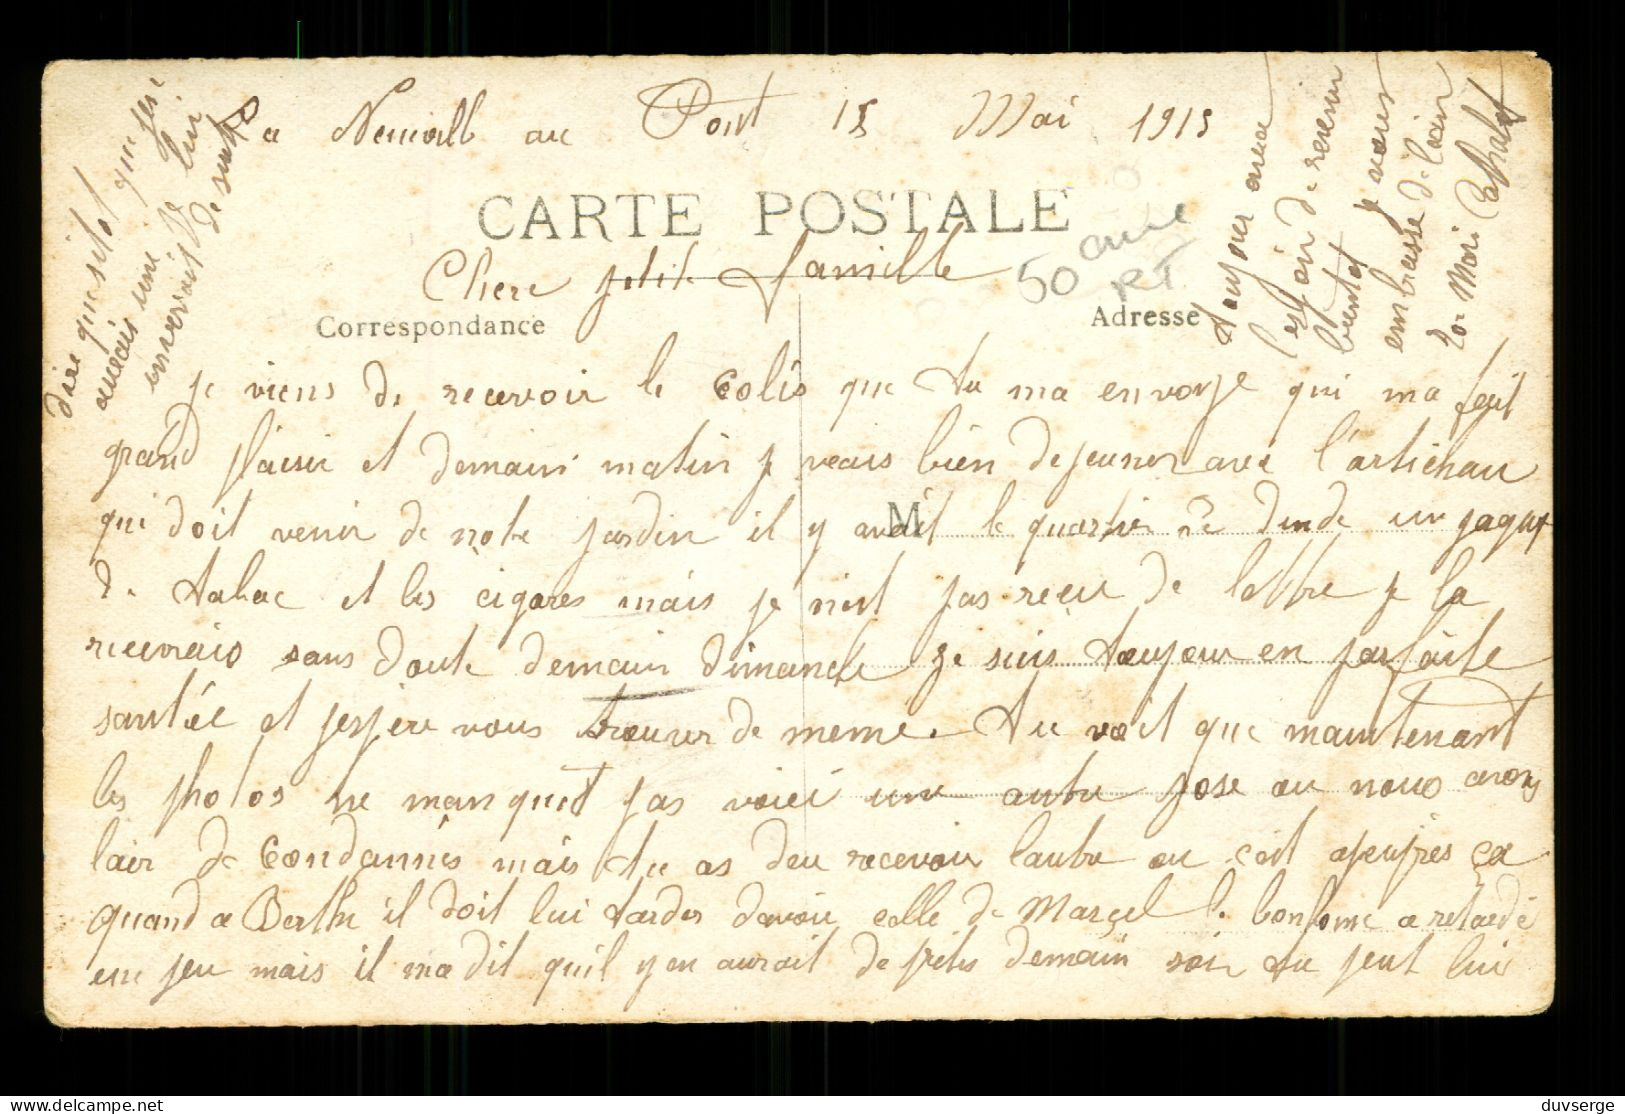 a Neuvill au Pont 15 Mai 1915
CARTE POSTALE
50 RT
Chere petite famille
Correspondance
Adresse
je viens de recevoir le Colis que tu ma envoye qui ma feit
grand plaisir et demain matin je veais bien dejeuner avec l'artichau
qui doit venir de notre jardin il y avait le quartier de dinde un paqut
de tabac et les cigares mais je n'est pas recu de lettre je la
recevrais sans doute demain dimanche Je suis toujour en parfaite
santée et jespère vous trouver de meme. tu voit que maintenant
les photos ne manquent pas voici une autre pose ou nous avons
lair de Condannés mais tu as deu recevoir lautre ou cest apeuprès ça
quand a Berthe il doit lui tarder davoir celle de Marcel le bonhome a retardé
un peu mais il ma dit quil y en aurait de prêts demain soir tu peut lui
dire que sitot que jen
aurais une je lui
enverrait de suite
M
toujour avec
l'espoir de revenir
bientot je vous
embrasse de loin
ton Mari
duvserge
Delcampe.net